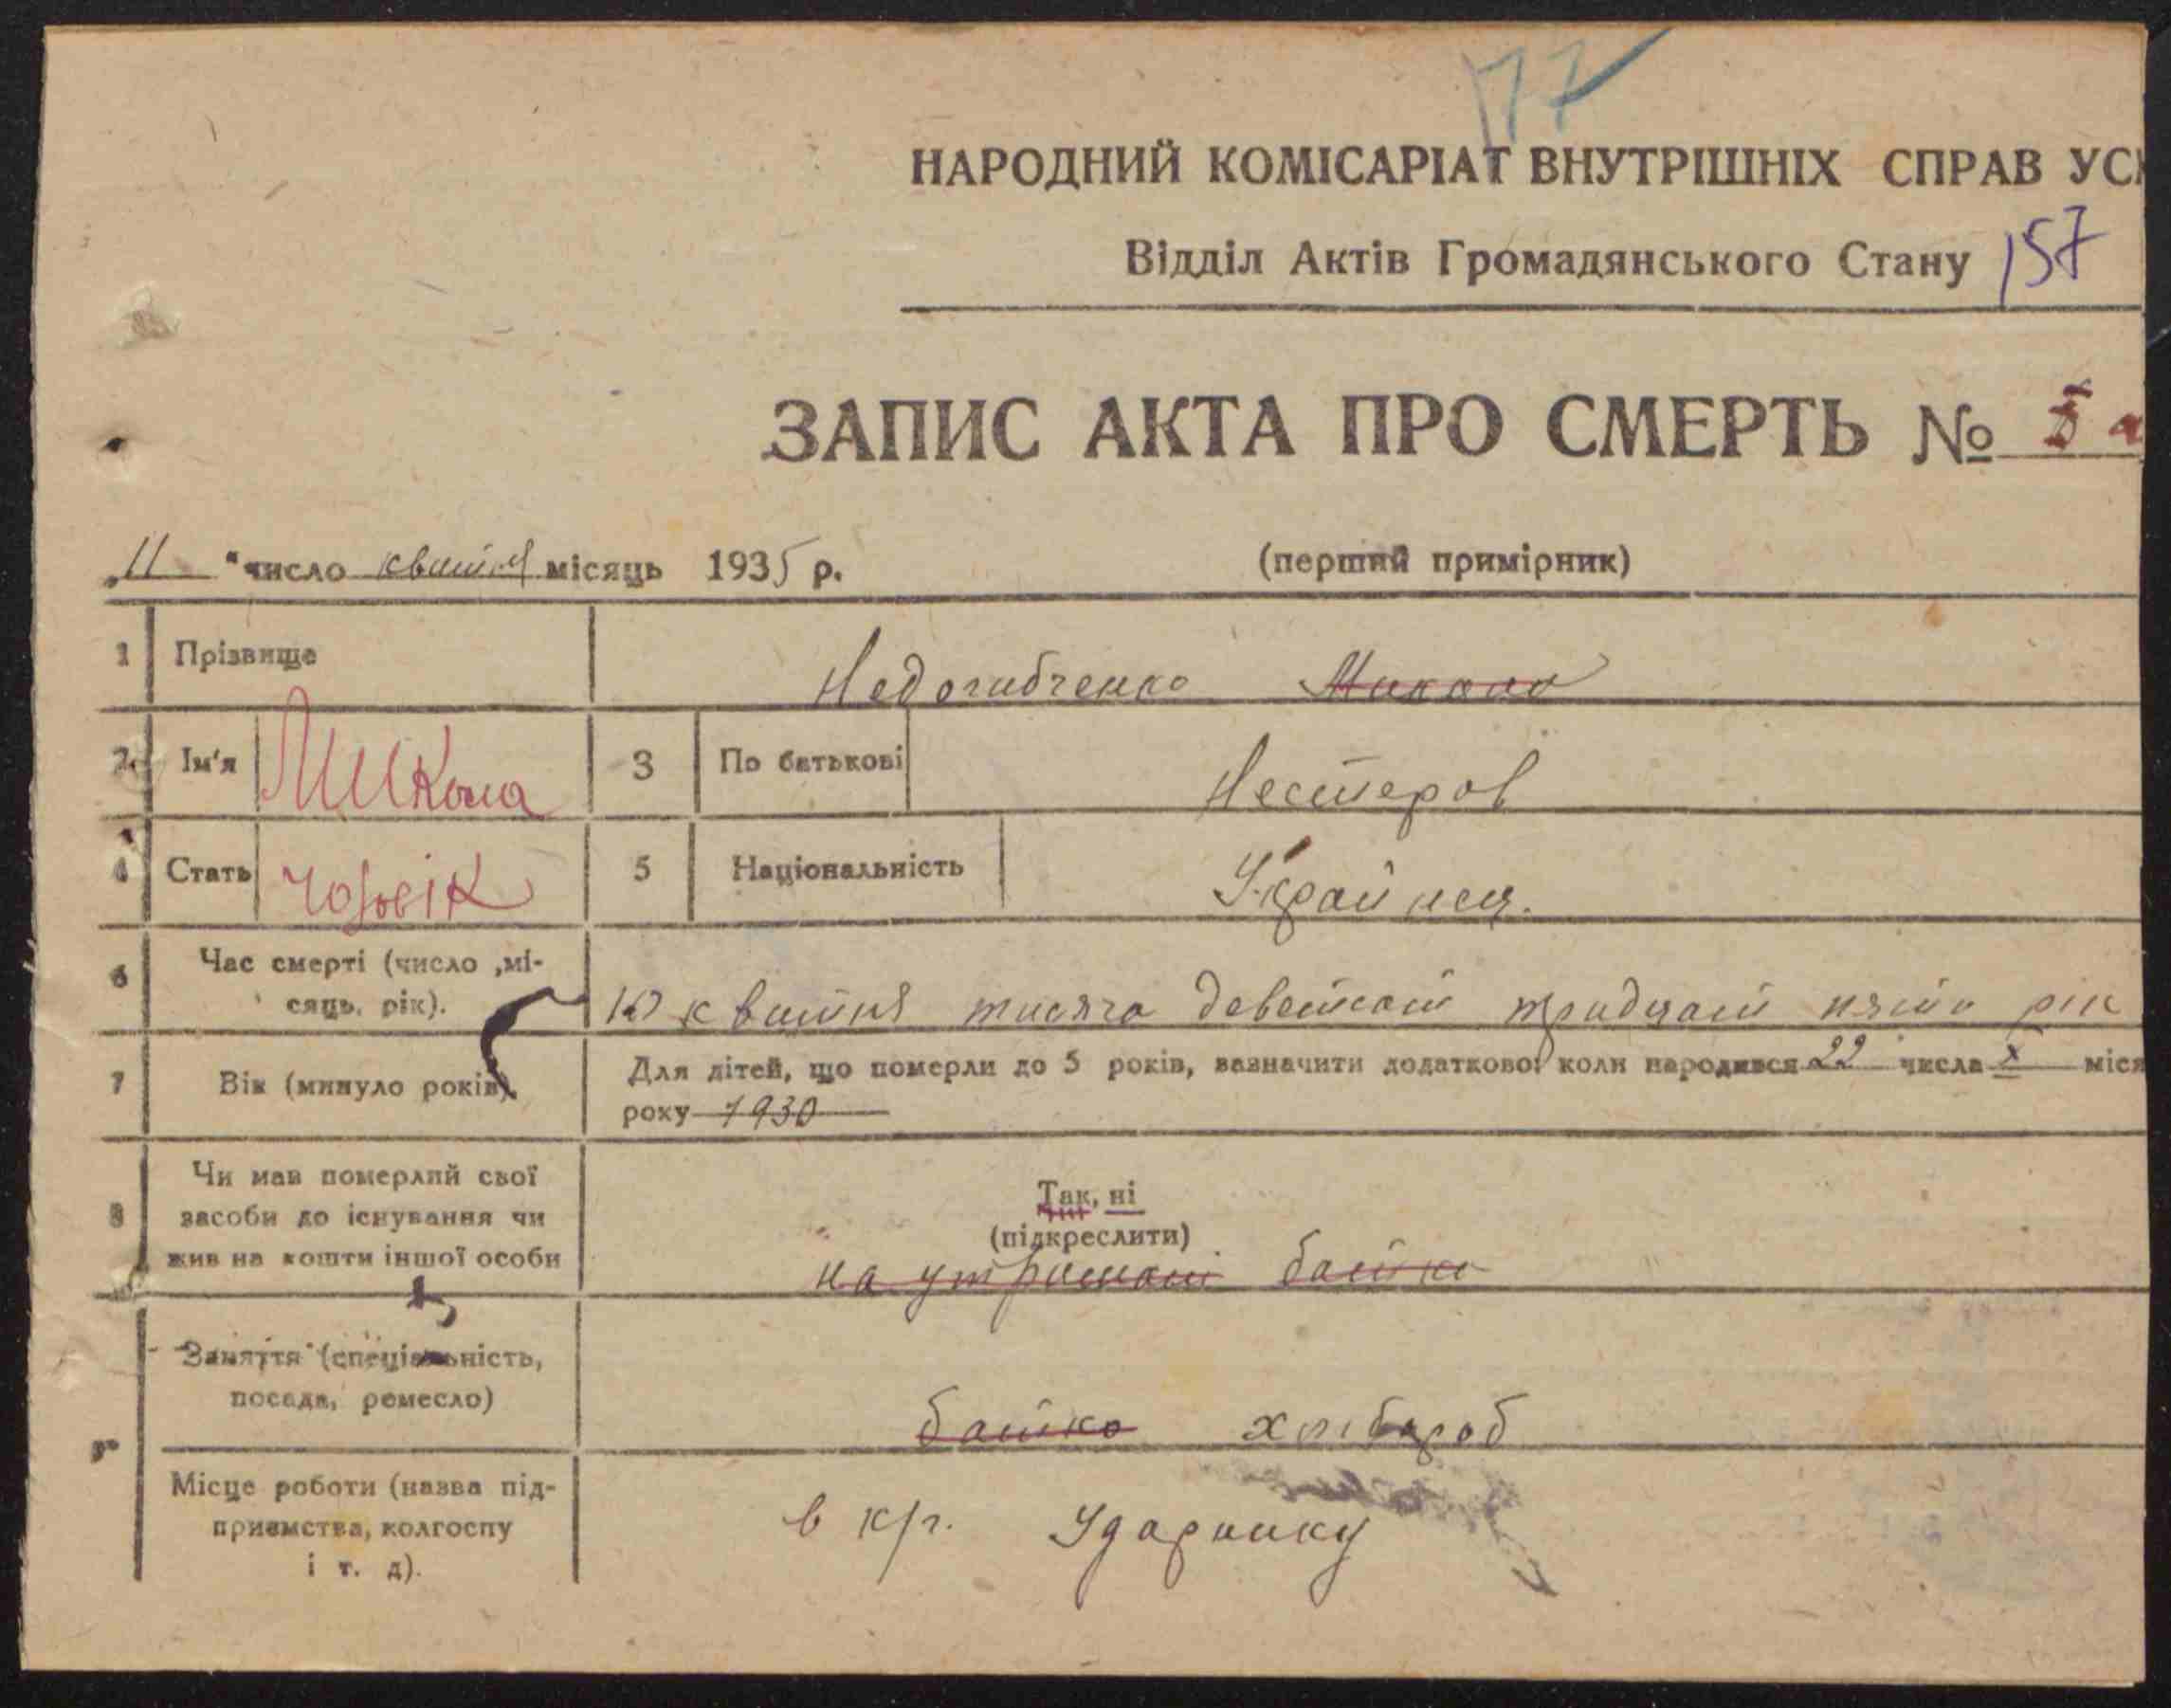 177
НАРОДНИЙ КОМІСАРІАТ ВНУТРІШНІХ СПРАВ УС
Відділ Актів Громадянського Стану 157
ЗАПИС АКТА ПРО СМЕРТЬ № 5 а
„11 “ число квітня місяць 1935 р. (перший примірник)
1 Прізвище Недогибченко Микола
2 Ім'я Микола 3 По батькові Нестеров
4 Стать чоловік 5 Національність Українец.
6 Час смерті (число ,мі-
сяць, рік). 10 квитня тисяча девятсот тридцат пято рік
7 Вік (минуло років). Для дітей, що померли до 5 років, зазначити додатково: коли народився 22 числа X міся
року 1930
8 Чи мав померлий свої
засоби до існування чи
жив на кошти іншої особи
Так, ні
(підкреслити)
на утримані батька
Заняття (спеціальність,
посада, ремесло)
батько хлібороб
9 Місце роботи (назва під-
приємства, колгоспу
і т. д).
в к/г. Ударнику